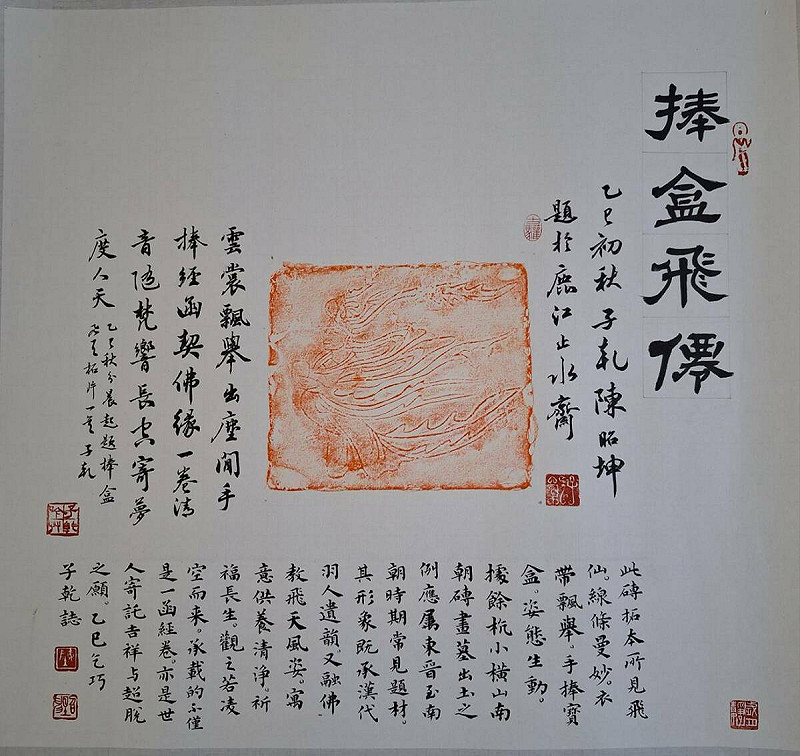 捧盒飛僊
乙巳初秋子乾陳昭坤
題於鹿江止水齋
雲裳飄舉出塵間手
捧經函契佛緣一卷清
音隨梵響長空寄夢
度人天
乙巳秋分晨起題捧盒
飛天拓片一首子乾
此磚拓本所見飛
仙。線條曼妙。衣
帶飄舉。手捧寶
盒。姿態生動。
據餘杭小橫山南
朝磚畫墓出土之
例應屬東晉至南
朝時期常見題材。
其形象既承漢代
羽人遺韻。又融佛
教飛天風姿。寓
意供養清淨。祈
福長生。觀之若凌
空而来。承載的不僅
是一函經卷。亦是世
人寄託吉祥与超脫
之願。乙巳乞巧
子乾誌